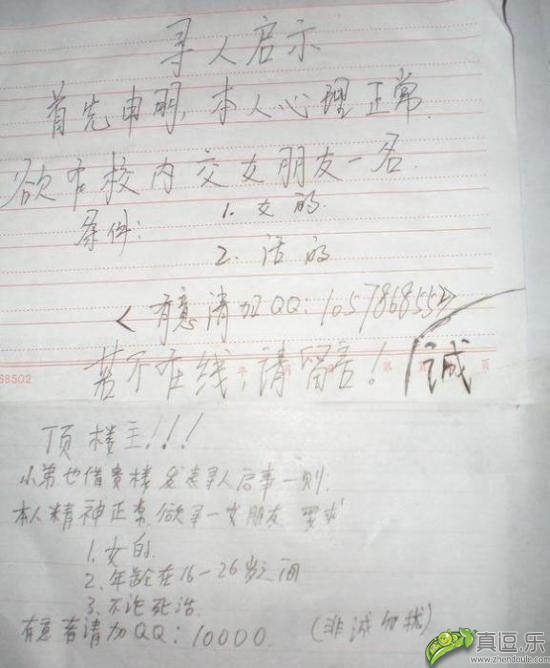 寻人启示
首先申明,本人心理正常.
欲在校内交女朋友一名.
条件: 1. 女的.
2. 活的
<有意请加QQ:1057868552>
若不在线,请留言! 诚
68502
顶楼主!!!
小弟也借贵楼发表寻人启事一则.
本人精神正常,欲寻一女朋友 要求
1. 女的.
2. 年龄在16-26岁之间
3. 不论死活.
有意者请加QQ:10000 (非诚勿扰)
真逗.乐
www.zhendoule.com